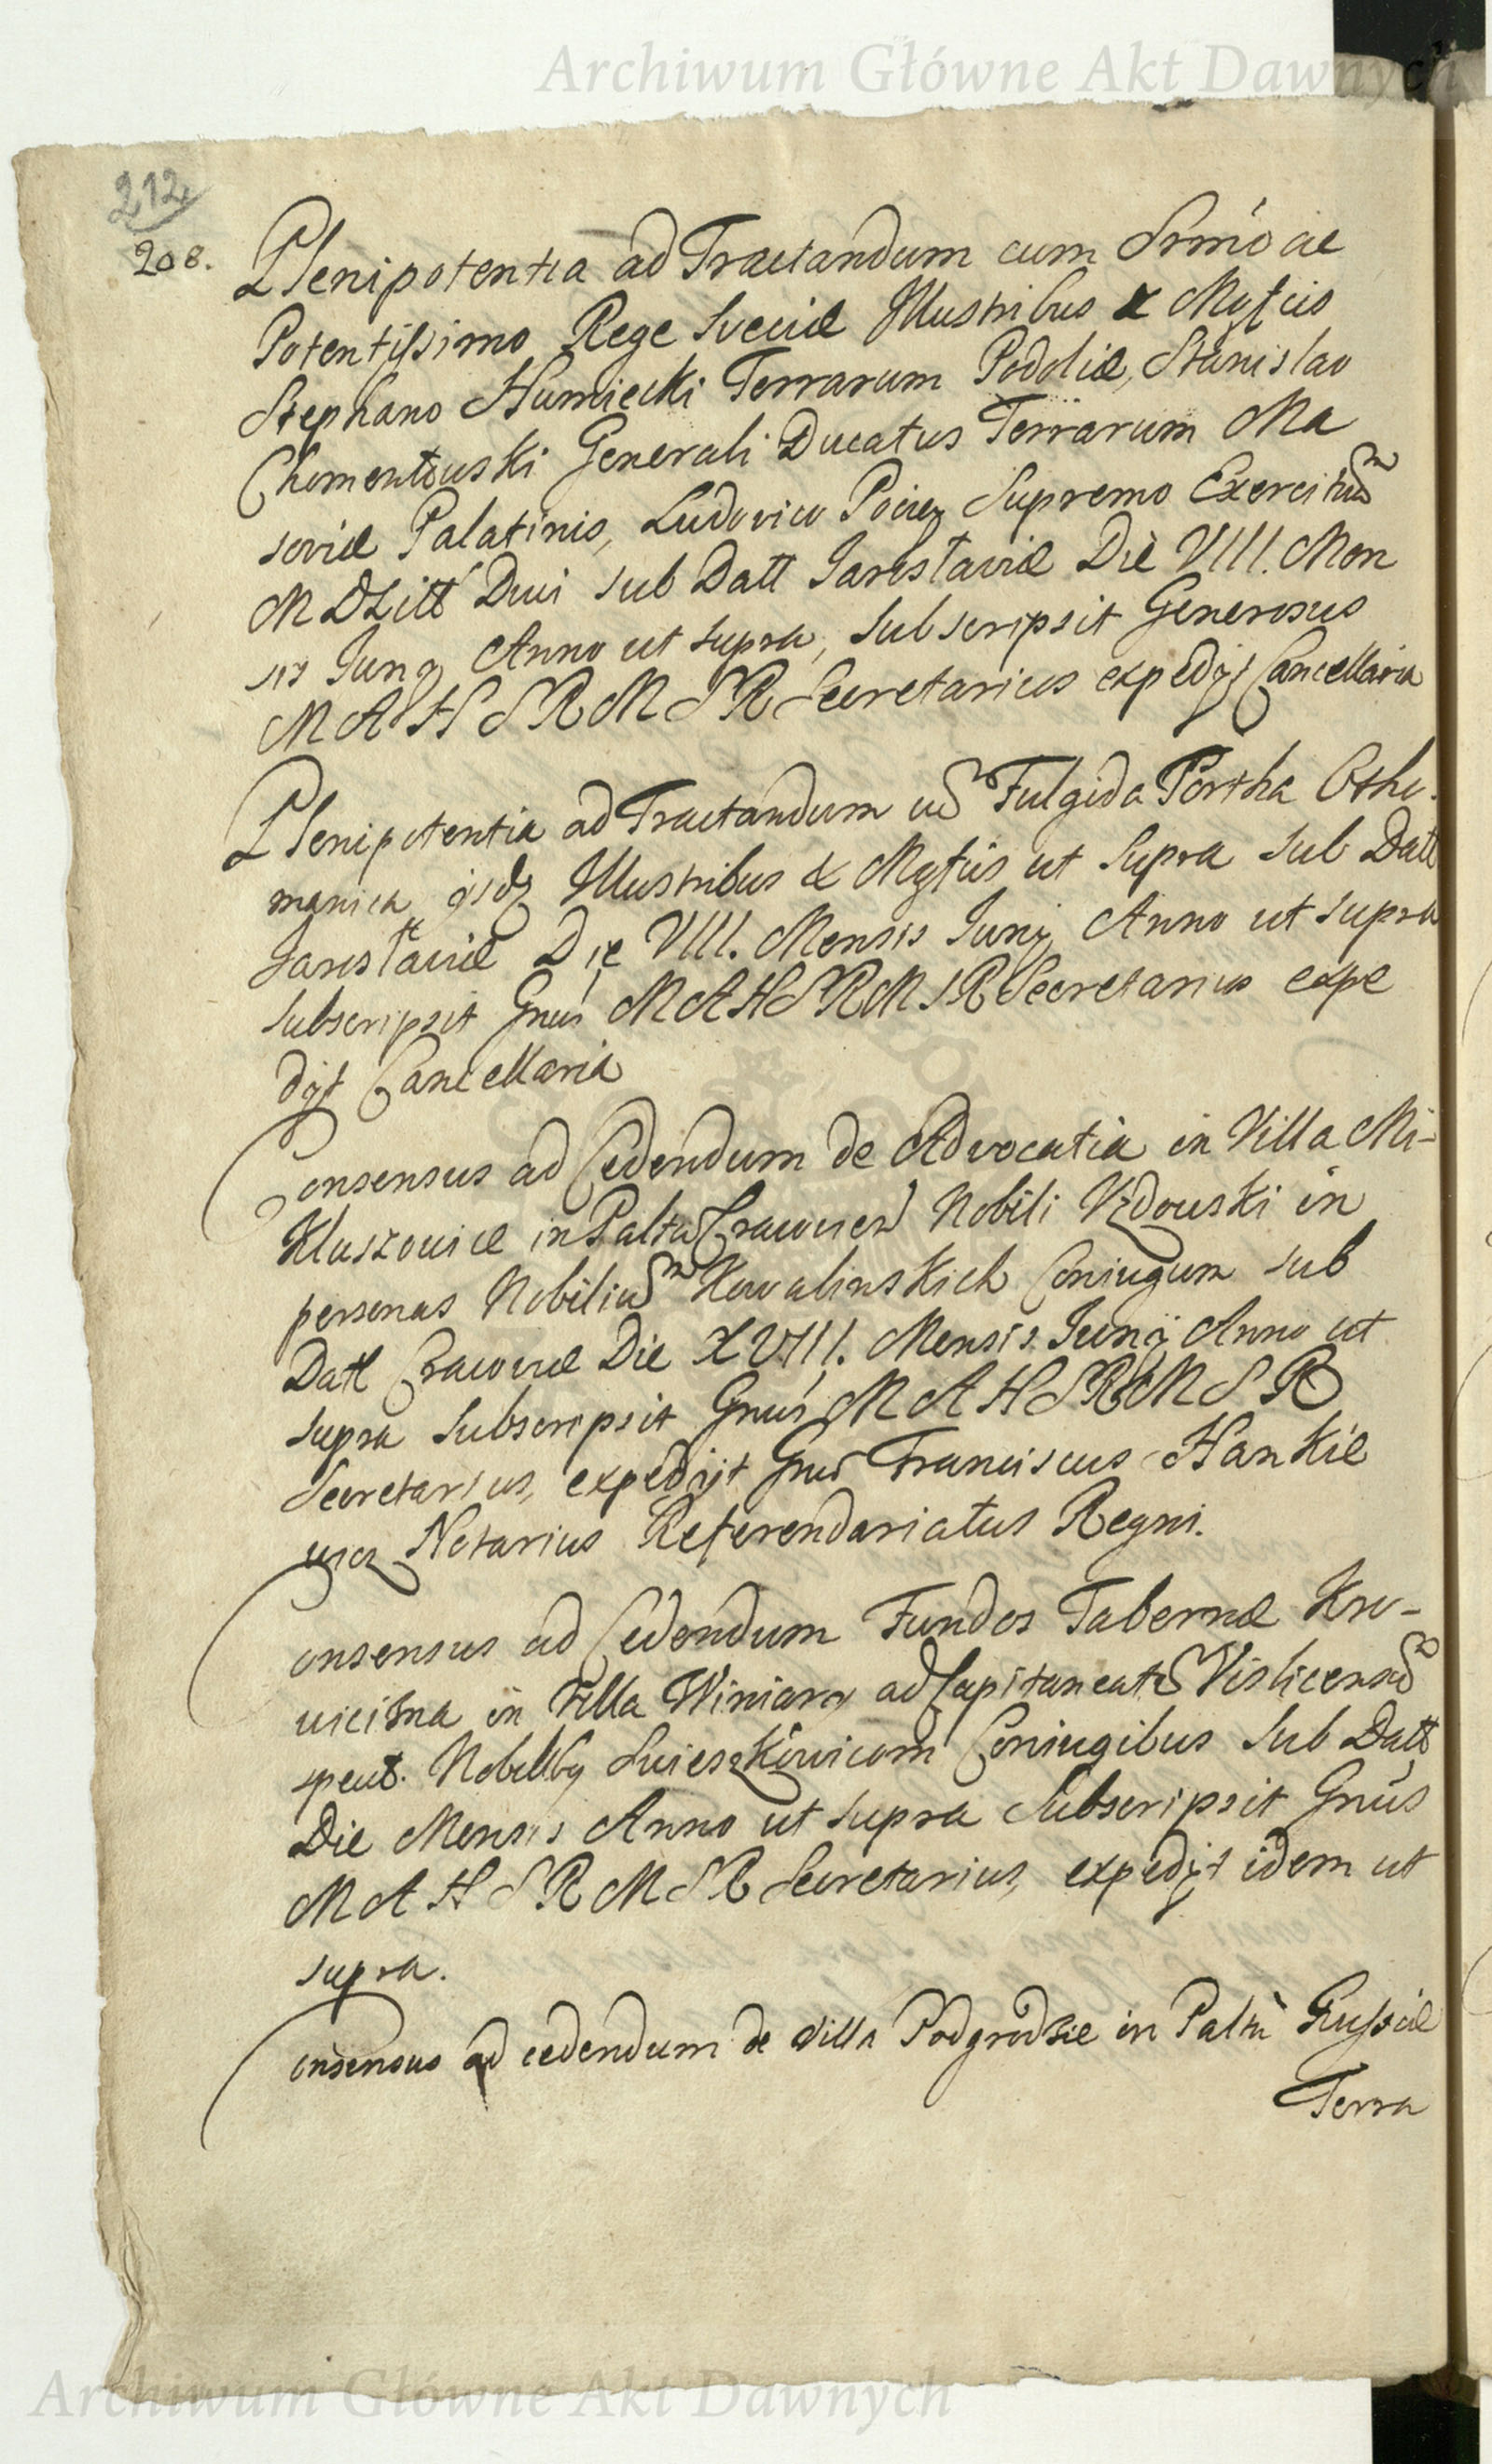 Archiwum Główne Akt Dawnych
212
208.
Plenipotentia ad Tractandum cum Srmo ac
Potentissimo Rege Sveciæ Illustribus & Mgfcis
Stephano Humiecki Terrarum Podoliæ, Stanislao
Chomentowski Generali Ducatus Terrarum Ma
soviæ Palatinis, Ludovico Pociey Supremo Exercituum
M D Litt Duci sub Datt Jaroslaviæ Die VIII. Men
sis Juny Anno ut supra, Subscripsit Generosus
M A H S R M S R Secretarius expedyt Cancellaria
Plenipotentia ad Tractandum cum Fulgida Portha Otho-
manica ysdem Illustribus & Mgfcis ut Supra sub Datt
Jaroslaviæ Die VIII. Mensis Juny Anno ut supra
subscripsit Gnus M A H S R M S R Secretarius expe
dyt Cancellaria
Consensus ad Cedendum de Advocatia in Villa Mi-
kluszowice in Paltu Cracovien Nobili Uzdowski in
personas Nobilium Kowalinskich Coniugum sub
Datt Cracoviæ Die XVIII. Mensis Juny Anno ut
supra Subscripsit Gnus M A H S R M S R
Secretarius, expedyt Gnus Franciscus Hankie
wicz Notarius Referendariatus Regni.
Consensus ad Cedendum Fundos Tabernæ
in Villa Winiary ad Capitaneatum Vislicensem
spect. Nobilibus Coniugibus sub Datt
Die Mensis Anno ut supra Subscripsit Gnus
M A H S R M S R Secretarius, expedyt idem ut
supra.
Consensus ad cedendum de villa Podgrodzie in Paltu Russiæ
Terra
Archiwum Główne Akt Dawnych